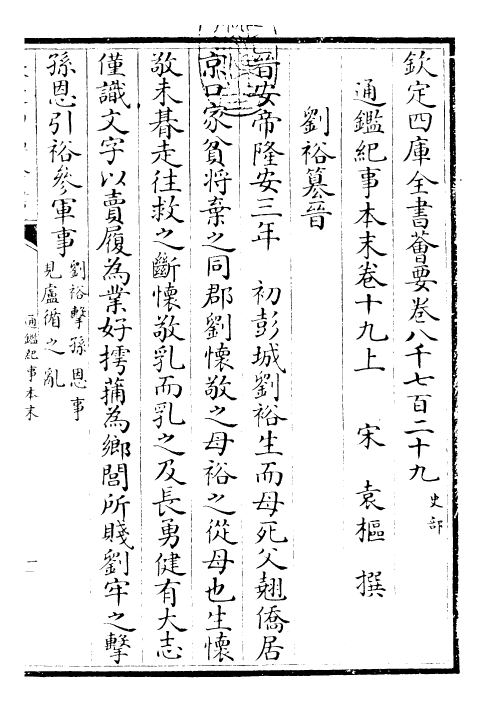 欽定四庫全書薈要卷八千七百二十九 史部
通鑑紀事本末卷十九上 宋 袁樞 撰
劉裕簒晉
晉安帝隆安三年 初彭城劉裕生而母死父翹僑居
京口家貧將棄之同郡劉懷敬之母裕之從母也生懷
敬未朞走往救之斷懷敬乳而乳之及長勇健有大志
僅識文字以賣履為業好摴蒱為鄉閭所賤劉牢之擊
孫恩引裕參軍事 劉裕擊孫恩事
見盧循之亂
通鑑紀事本末
一